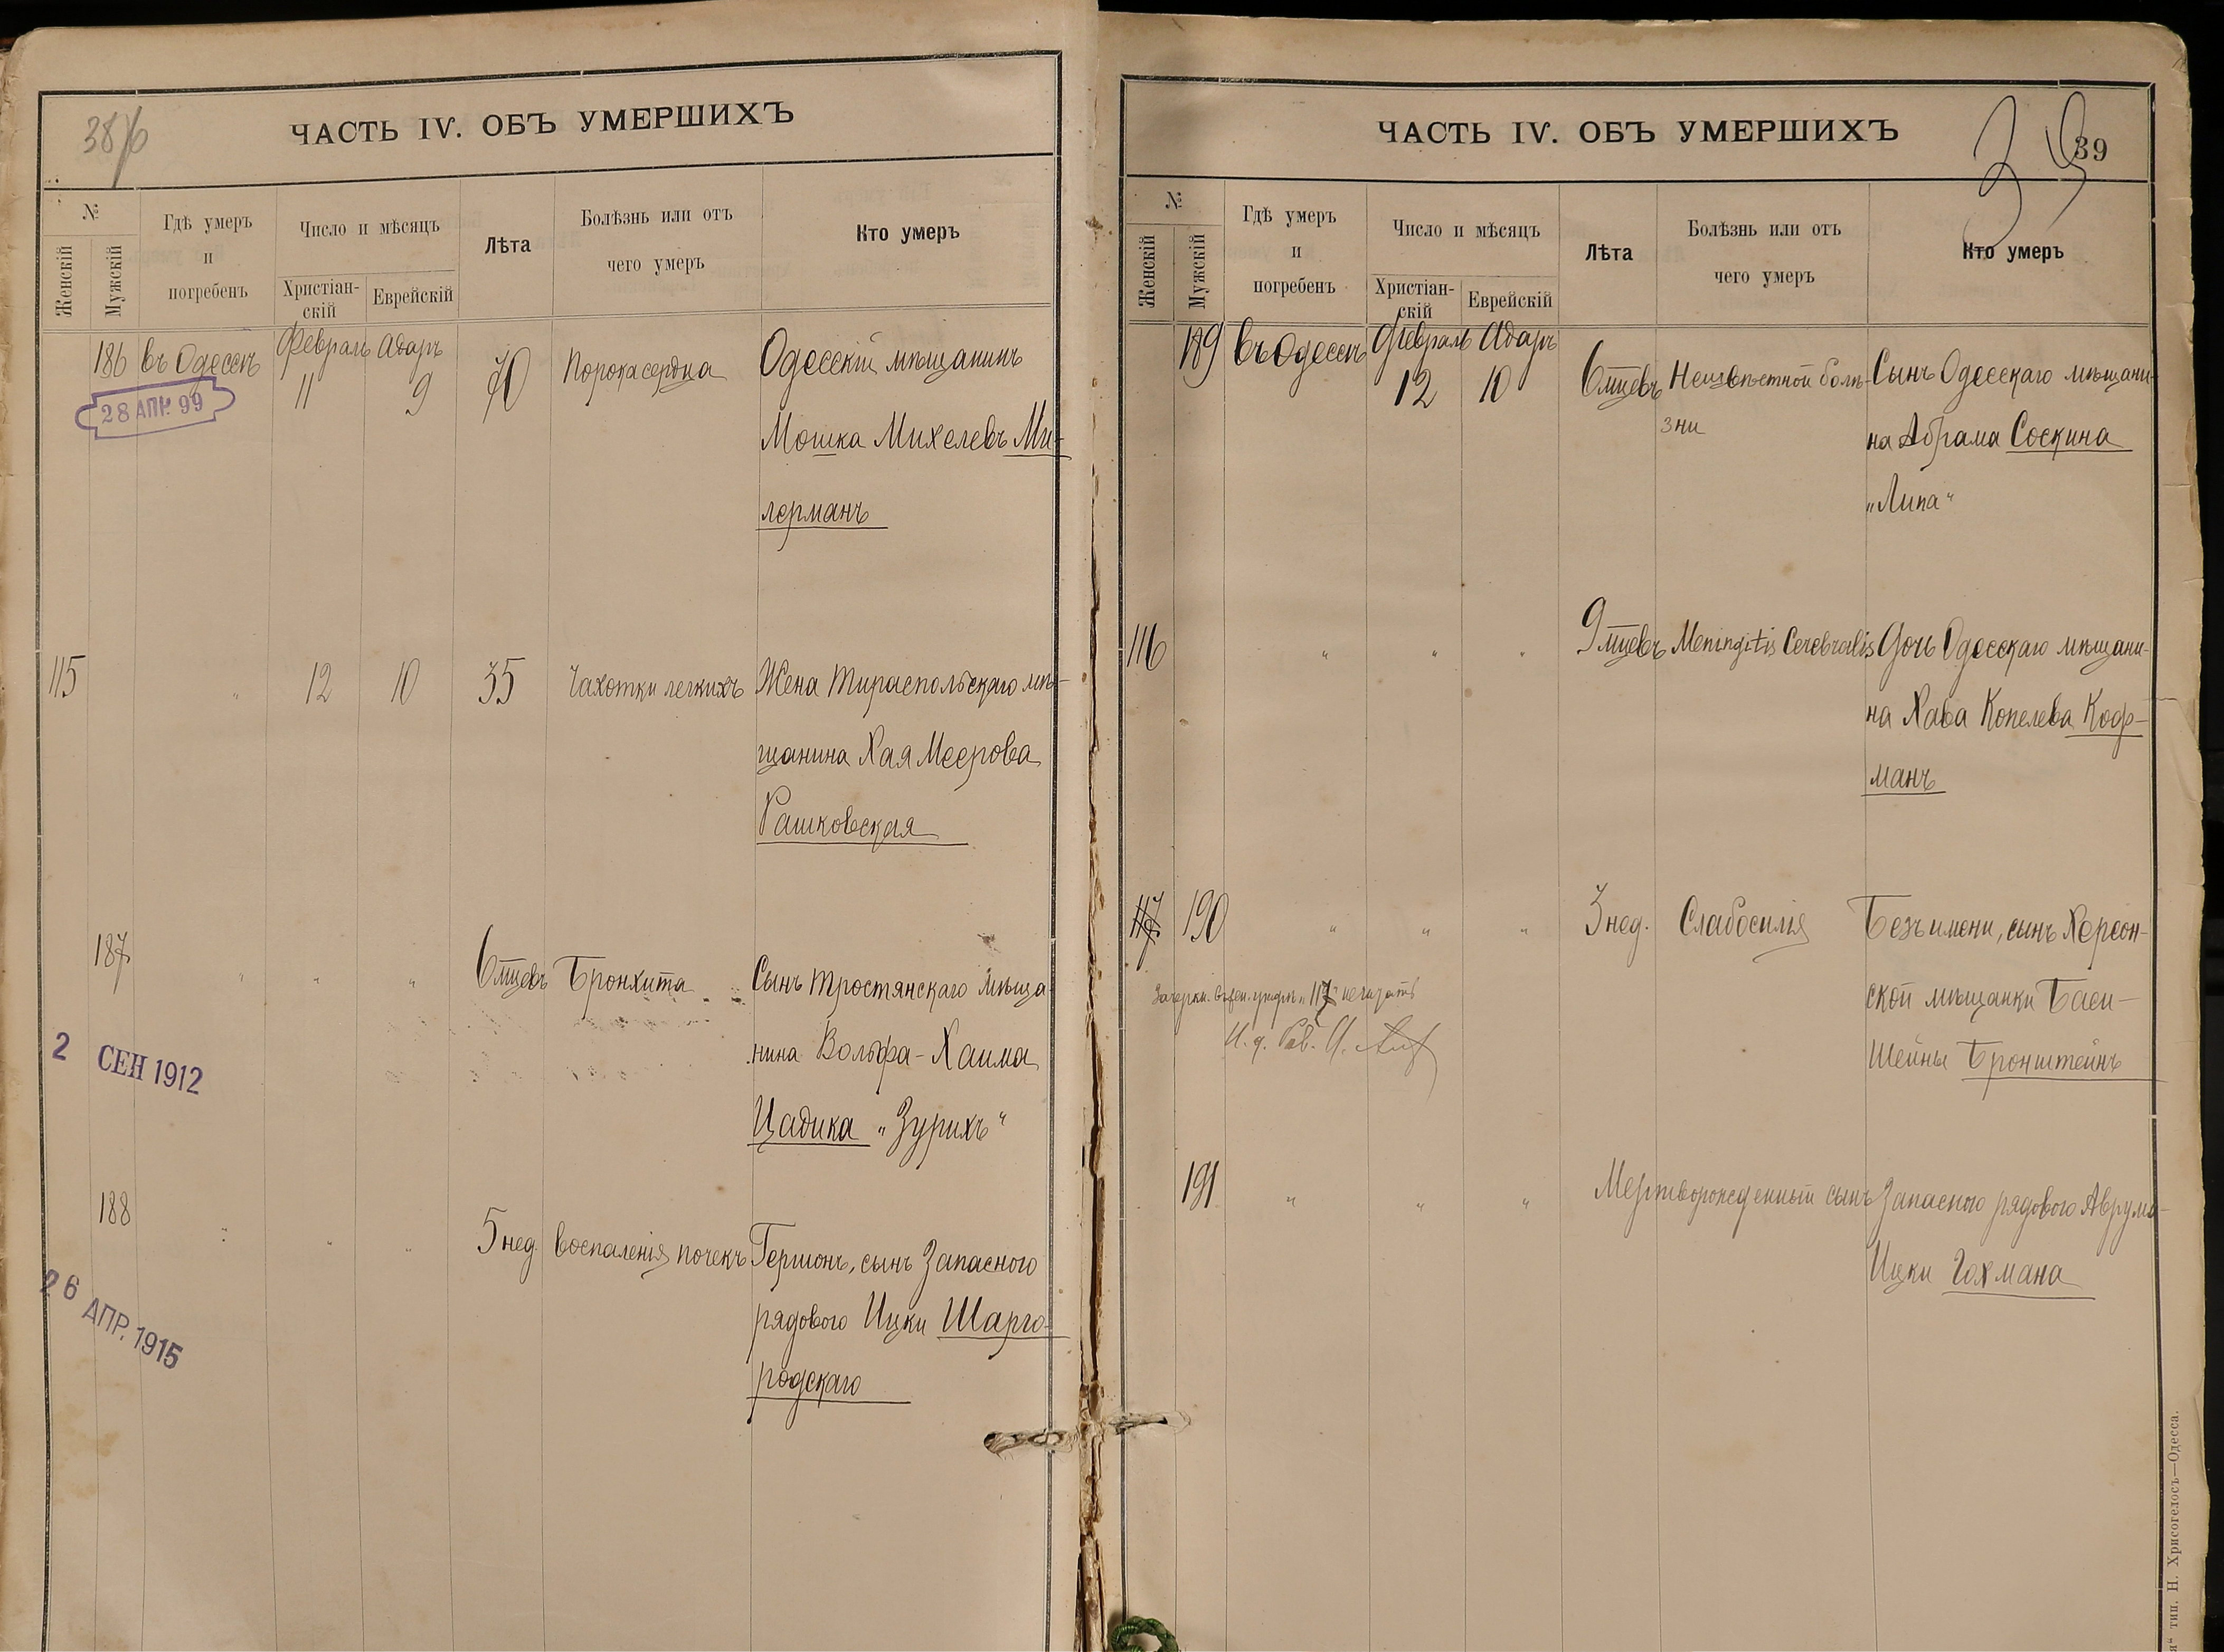 38 об
ЧАСТЬ IV. ОБЪ УМЕРШИХЪ
№
Женскій
Мужскій
Гдѣ умеръ
и
погребенъ
Число и мѣсяцъ
Христіан-
скій
Еврейскій
Лѣта
Болѣзнь или отъ
чего умеръ
Кто умеръ
186 въ Одессѣ Февраль 11 Адаръ 9 70 Порока сердца Одесскій мѣщанинъ
Мошка Михелевъ Ми-
лерманъ
28 АПР. 99
115 " 12 10 35 Чахотки легкихъ Жена Тираспольскаго мѣ-
щанина Хая Меерова
Рашковская
187 " " " 6 мцевъ Бронхита Сынъ Тростянскаго мѣща
нина Вольфа-Хаима
Цадика „Зурихъ“
2 СЕН 1912
188 " " " 5 нед. воспаленія почекъ Гершонъ, сынъ Запаснаго
рядового Ицки Шарго-
родскаго
26 АПР. 1915
ЧАСТЬ IV. ОБЪ УМЕРШИХЪ
39
39
№
Женскій
Мужскій
Гдѣ умеръ
и
погребенъ
Число и мѣсяцъ
Христіан-
скій
Еврейскій
Лѣта
Болѣзнь или отъ
чего умеръ
Кто умеръ
189 въ Одессѣ Февраль 12 Адаръ 10 6 мцевъ Неизвѣстной болѣ- Сынъ Одесскаго мѣщани-
зни на Абрама Соскина
„Липа“
116 " " " 9 мцевъ Meningitis Cerebralis Дочь Одесскаго мѣщани-
на Хава Копелева Коф-
манъ
117 190 " " " 3 нед. Слабосилія Безъ имени, сынъ Херсон-
ской мѣщанки Баси-
Шейны Бронштейнъ
"117" не читать
И. д. Рав.
191 " " " Мертворожденный сынъ Запасного рядового Аврума-
Ицки Гохмана
тип. Н. Хрисогелосъ—Одесса.